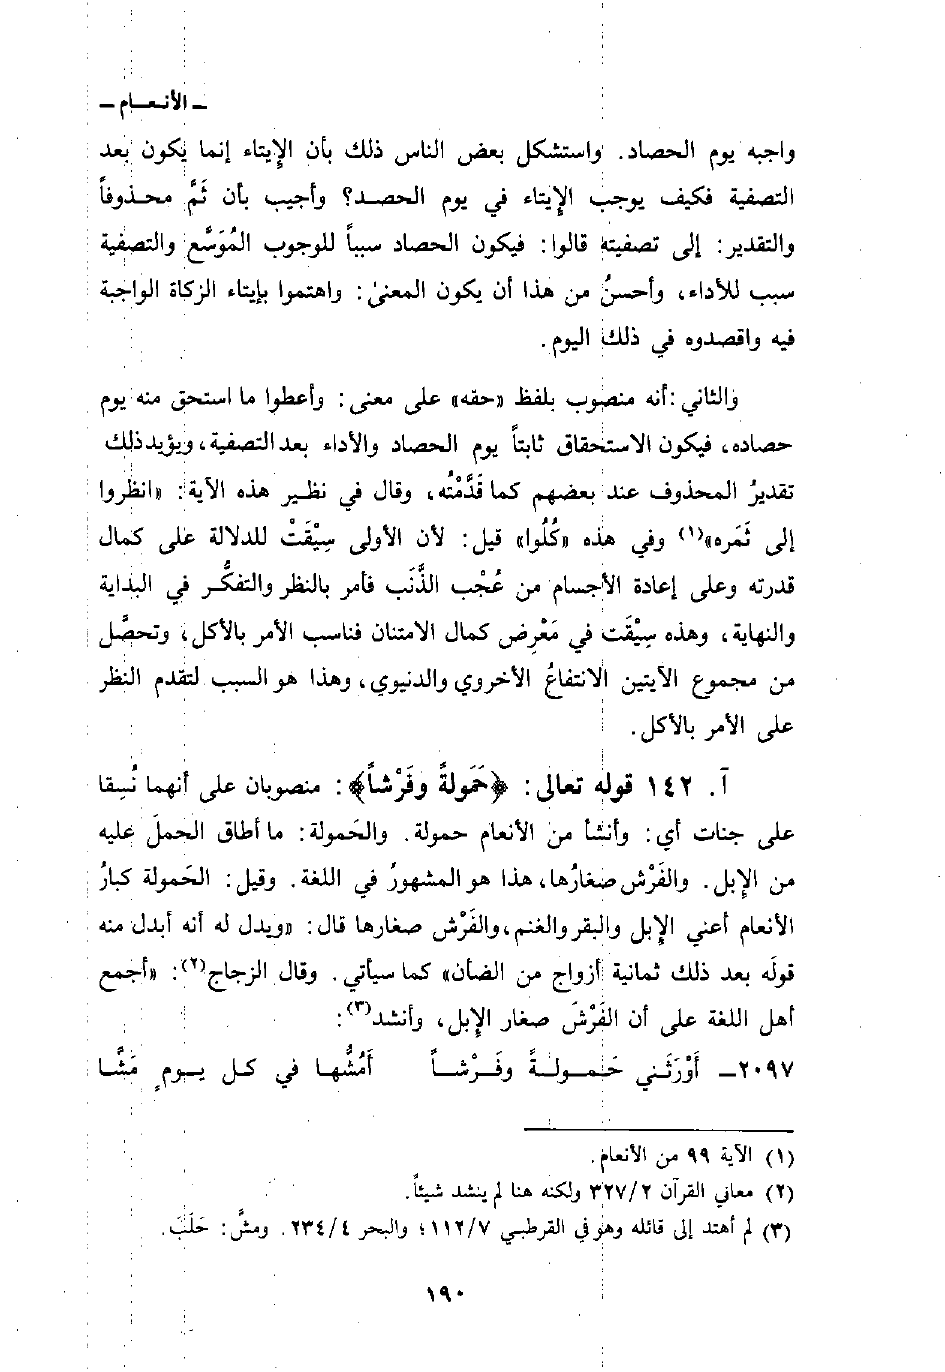 ـ الأنعام ـ
واجبه يوم الحصاد. واستشكل بعض الناس ذلك بأن الإيتاء إنما يكون بعد
التصفية فكيف يوجب الإيتاء في يوم الحصد؟ وأجيب بأن ثَمَّ محذوفاً
والتقدير: إلى تصفيته قالوا: فيكون الحصاد سبباً للوجوب المُوَسَّع والتصفية
سبب للأداء، وأحسنُ من هذا أن يكون المعنىٰ: واهتموا بإيتاء الزكاة الواجبة
فيه واقصدوه في ذلك اليوم.
والثاني: أنه منصوب بلفظ «حقه» على معنى: وأعطوا ما استحق منه يوم
حصاده، فيكون الاستحقاق ثابتاً يوم الحصاد والأداء بعد التصفية، ويؤيد ذلك
تقديرُ المحذوف عند بعضهم كما قَدَّمْتُه، وقال في نظير هذه الآية: «انظروا
إلى ثَمَره»(١) وفي هذه «كُلُوا» قيل: لأن الأولى سِيْقَتْ للدلالة على كمال
قدرته وعلى إعادة الأجسام من عُجْب الذَّنَب فأمر بالنظر والتفكُّر في البداية
والنهاية، وهذه سِيْقَت في مَعْرِض كمال الامتنان فناسب الأمر بالأكل، وتحصَّل
من مجموع الآيتين الانتفاعُ الأخروي والدنيوي، وهذا هو السبب لتقدم النظر
على الأمر بالأكل.
آ. ١٤٢ قوله تعالى: ﴿حَمَولةً وفَرْشاً﴾: منصوبان على أنهما نُسِقا
على جنات أي: وأنشأ من الأنعام حمولة. والحَمولة: ما أطاق الحملَ عليه
من الإبل. والفَرْش صغارُها، هذا هو المشهورُ في اللغة. وقيل: الحَمولة كبارُ
الأنعام أعني الإبل والبقر والغنم، والفَرْش صغارها قال: «ويدل له أنه أبدل منه
قولَه بعد ذلك ثمانية أزواج من الضأن» كما سيأتي. وقال الزجاج(٢): «أجمع
أهل اللغة على أن الفَرْشَ صغار الإبل، وأنشد(٣):
٢٠٩٧ـ أَوْرَثَني حَمولةً وفَرْشاً أَمُشُّها في كل يومٍ مَشَّا
(١) الآية ٩٩ من الأنعام.
(٢) معاني القرآن ٣٢٧/٢ ولكنه هنا لم ينشد شيئاً.
(٣) لم أهتد إلى قائله وهو في القرطبي ١١٢/٧؛ والبحر ٢٣٤/٤. ومشَّ: حَلَبَ.
١٩٠